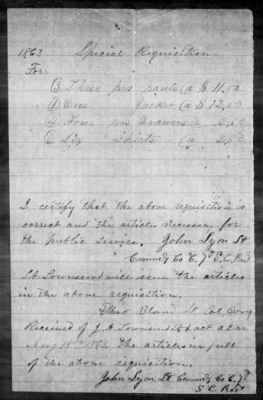 1863 Special Requisition
For:
(3) Three prs pants @ $ 11.00
(1) One Jacket @ $ 12.00
(4) Four prs Drawers @
(6) Six Shirts @
I certify that the above requisition is
correct and the articles necessary for
the public service. John Lyon Lt
Commdg Co C, 7th S.C. Regt
Lt. Townsend will issue the articles
in the above requisition.
Elbert Bland Lt Col, Comg
Received of J. A. Townsend Lt & act a.q.m
May 18th 1863 The articles in full
of the above requisition.
John Lyon Lt Commdg Co C. 7th
S C Regt